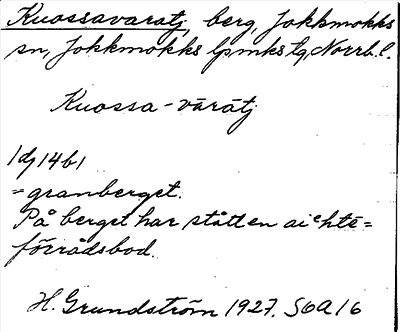 Kuossavaratj, berg, Jokkmokks
sn, Jokkmokks lpmks tg, Norrb. l.
Kuossa-vārātj
1dg14b1
= granberget.
På berget har stått en aichte=
förrådsbod.
H. Grundström 1927. S6A16